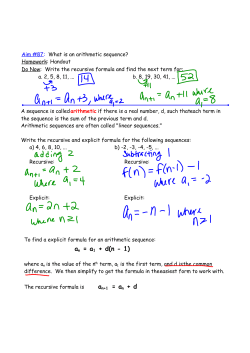 Aim #87: What is an arithmetic sequence?
Homework: Handout
Do Now: Write the recursive formula and find the next term for:
a. 2, 5, 8, 11, ... 14 b. 8, 19, 30, 41, ... 52
+3
aₙ₊₁ = aₙ + 3, where a₁=2 aₙ₊₁ = aₙ + 11 where a₁ = 8
A sequence is called arithmetic if there is a real number, d, such that each term in
the sequence is the sum of the previous term and d.
Arithmetic sequences are often called "linear sequences."
Write the recursive and explicit formula for the following sequences:
a) 4, 6, 8, 10, ... b) -2, -3, -4, -5, ...
adding 2 Subtracting 1
Recursive: Recursive:
aₙ₊₁ = aₙ + 2 f(n) = f(n-1) - 1
where a₁ = 4 where a₁ = -2
Explicit: Explicit:
aₙ = 2n + 2 aₙ = -n - 1 where
where n ≥ 1 n ≥ 1
To find a explicit formula for an arithmetic sequence:
aₙ = a₁ + d(n - 1)
where aₙ is the value of the nᵗʰ term, a₁ is the first term, and d is the common
difference. We then simplify to get the formula in the easiest form to work with.
The recursive formula is aₙ₊₁ = aₙ + d